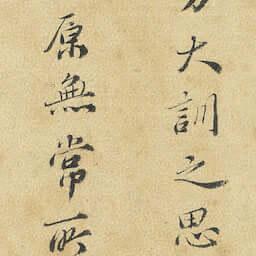 大訓之思
原無常所